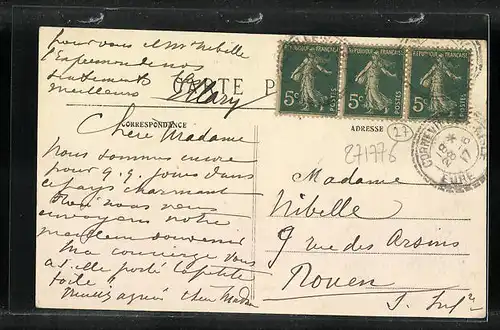 pour vous et Mr Nibelle
l'Expression de nos
sentiments
meilleurs Mary
CARTE P
CORRESPONDANCE
Chère Madame
Nous sommes encore
pour q.q. jours dans
ce pays charmant
d'où nous vous
envoyons notre
meilleur souvenir
Ma concierge vous
a t'elle porté la petite
toile
Veuillez agréer chère Madame
REPUBLIQUE FRANÇAISE
5c POSTES
REPUBLIQUE FRANÇAISE
5c POSTES
REPUBLIQUE FRANÇAISE
5c POSTES
ADRESSE
27
271776
EURE
Madame
Nibelle
9 rue des Arsins
Rouen
S. Infre